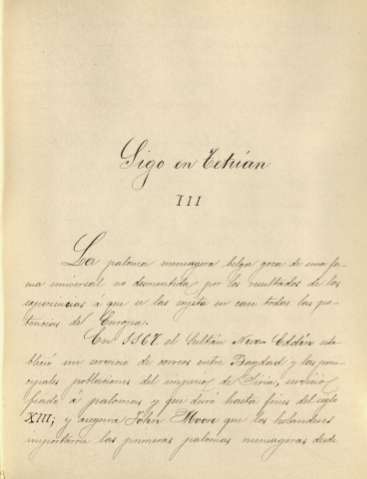 Sigo en Tetuán
III
La paloma mensagera belga goza de una fa-
ma universal no desmentida por los resultados de las
esperiencias á que se las sujeta en casi todas las po-
tencias de Europa.
En 1167, el Sultán Nour-Eddin esta-
bleció un servicio de correos entre Bagdad y las prin-
cipales poblaciones del imperio de Siria, servicio
fiado á palomas y que duró hasta fines del siglo
XIII; y asegura John Moore que los holandeses
importaron las primeras palomas mensageras desde